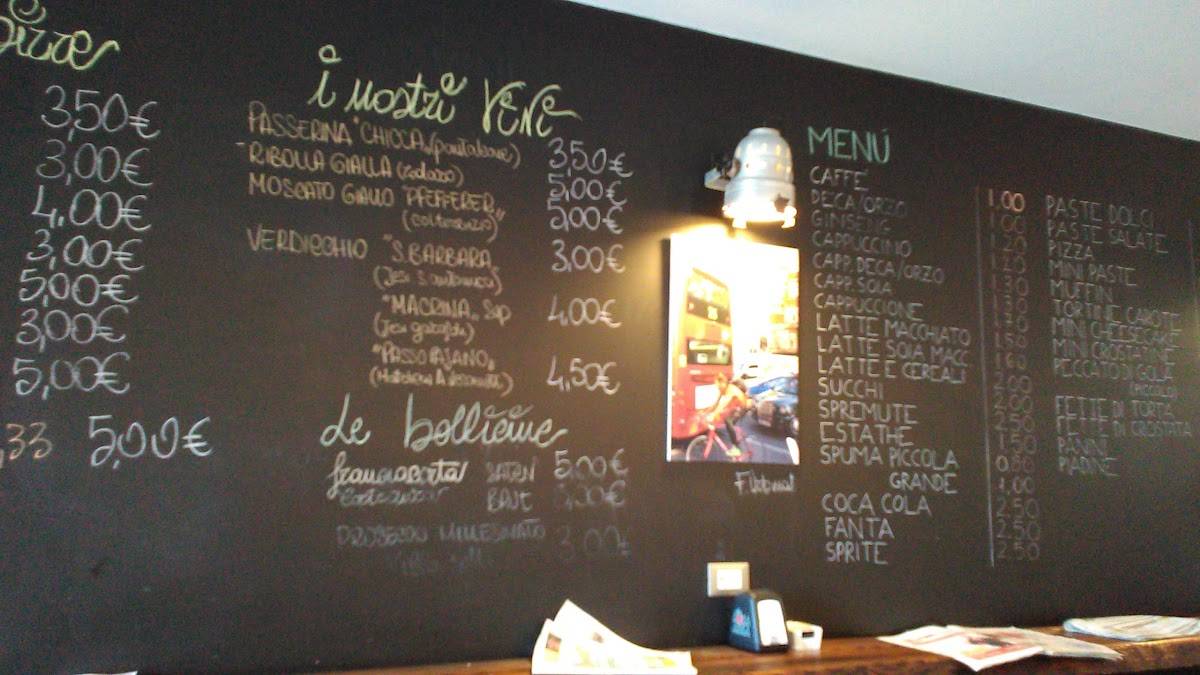 3,50€
3,00€
4,00€
3,00€
5,00€
3,00€
5,00€
33 5,00€
i nostri ViNi
PASSERINA "CHICCA" 3,50€
-RIBOLLA GIALLA 5,00€
MOSCATO GIALLO "PFEFFERER" 3,00€
VERDICCHIO "S.BARBARA" 3,00€
"MACRINA" 4,00€
4,50€
Le bollicine
Franciacorta SATEN 5,00€
PROSECCO MILLESIMATO 3,00€
MENÚ
CAFFE' 1.00
DECA/ORZO 1.00
GINSENG 1.20
CAPPUCCINO 1.20
CAPP. DECA/ORZO 1.30
CAPP. SOIA 1.30
CAPPUCCIONE
LATTE MACCHIATO 1.50
LATTE SOIA MACC 1.60
LATTE E CEREALI 2.00
SUCCHI 2.00
SPREMUTE 2.50
ESTATHE 1.50
SPUMA PICCOLA 0.80
GRANDE 1.00
COCA COLA 2.50
FANTA 2.50
SPRITE 2.50
PASTE DOLCI
PASTE SALATE
PIZZA
MINI PASTE
MUFFIN
TORTINE CAROTE
MINI CHEESECAKE
MINI CROSTATINE
PECCATO DI GOLA
FETTE DI TORTA
FETTE DI CROSTATA
PANINI
PIADINE